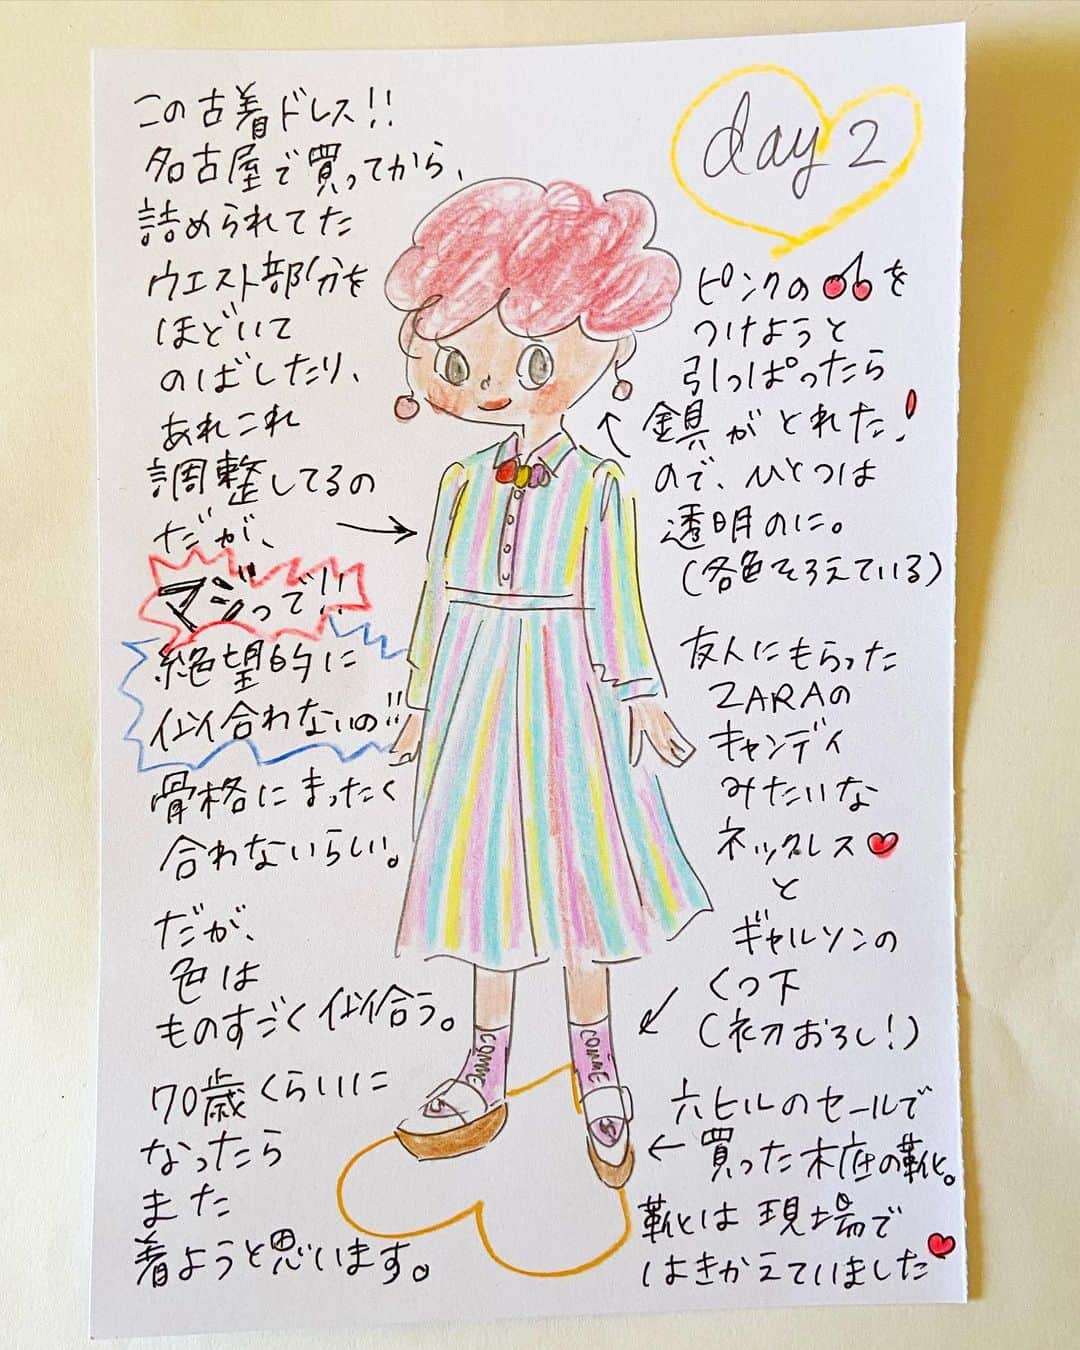 day 2
この古着ドレス!!
名古屋で買ってから、
詰められてた
ウエスト部分を
ほどいて
のばしたり、
あれこれ
調整してるの
だが、
マジっで!!
絶望的に
似合わないの!!
骨格にまったく
合わないらしい。
だが、
色は
ものすごく似合う。
70歳くらいに
なったら
また
着ようと思います。
ピンクの🍒を
つけようと
引っぱったら
金具がとれた!
ので、ひとつは
透明のに。
(各色そろえている)
友人にもらった
ZARAの
キャンディ
みたいな
ネックレス♥
と
ギャルソンの
くつ下
(初おろし!)
六ヒルのセールで
買った木底の靴。
靴は現場で
はきかえていました♥
COMME
COMME